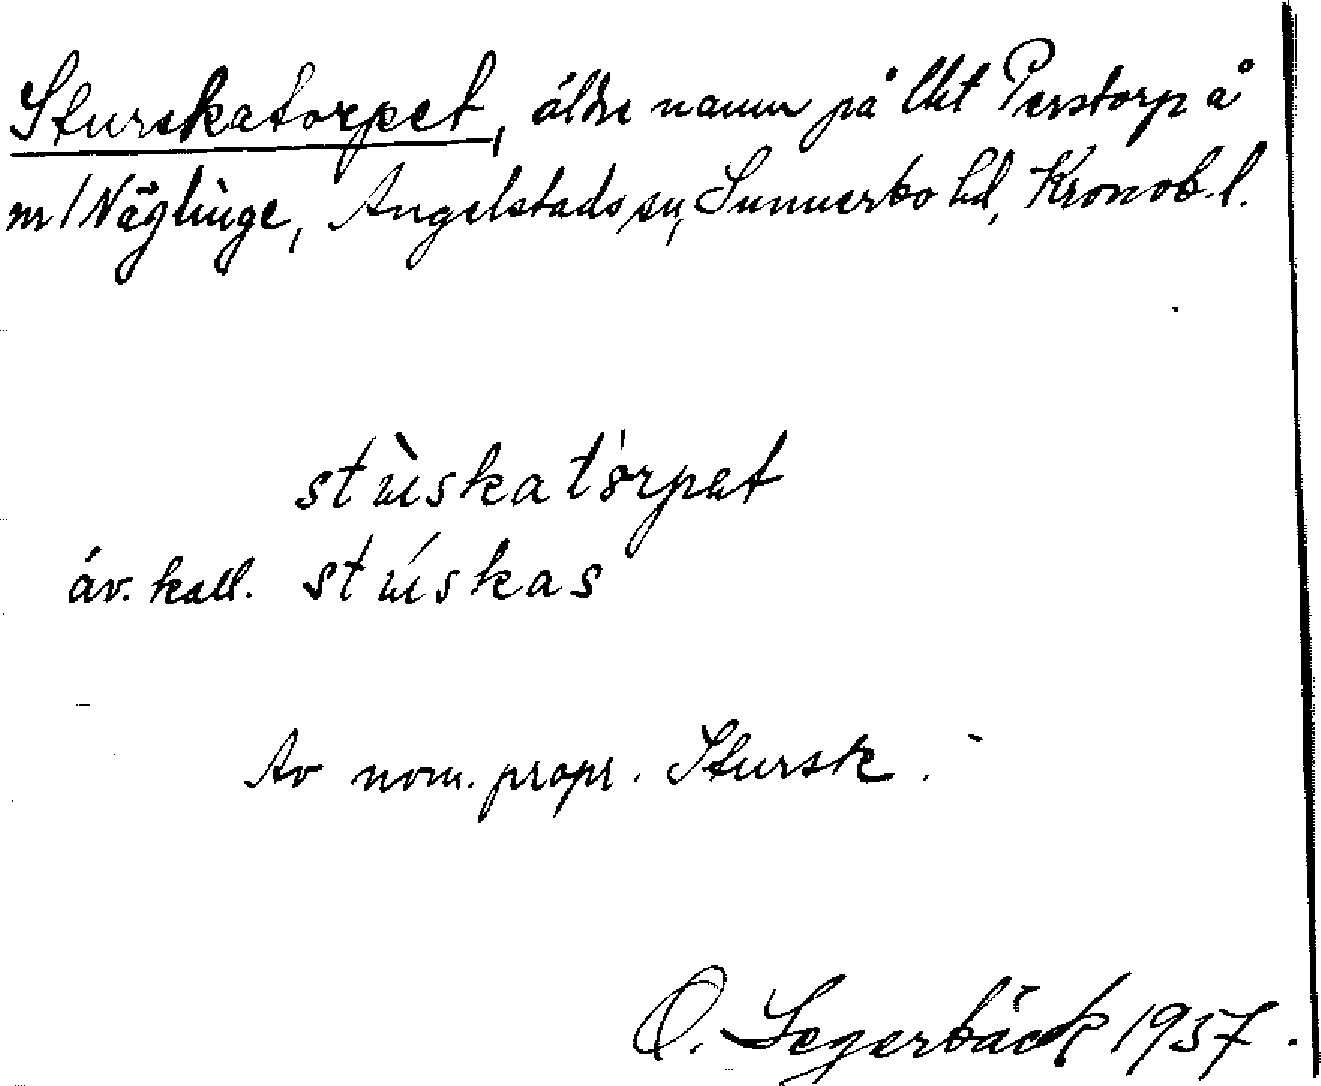 Sturskatorpet, äldre namn på lht Perstorp å
nr 1 Näglinge, Angelstads sn, Sunnerbo hd, Kronob. l.
stùskatórpet
äv. kall. stúskas
Av nom. propr. Stursk.
O. Segerbäck 1937.